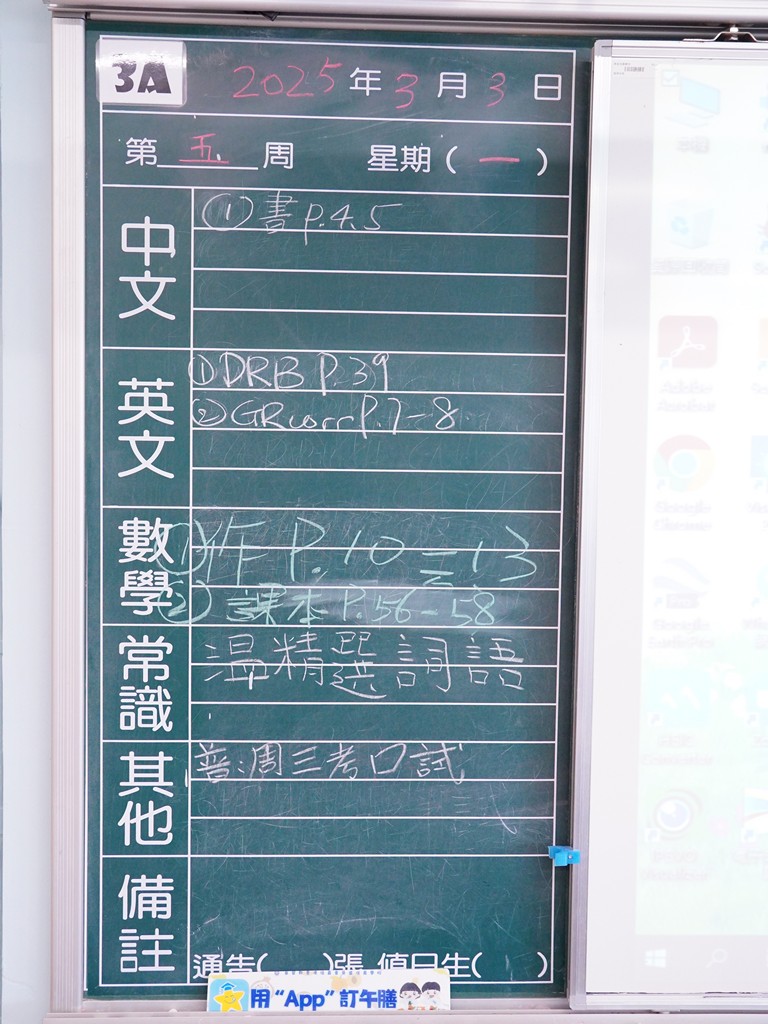 3A 2025年3月3日
第五周 星期(一)
中文
①書P.4,5
英文
①DRB P.39
②GRcorr P.7-8
數學
①作 P.10-13
②課本 P.56-58
常識
溫精選詞語
其他
普:周三考口試
備註
通告( )張 值日生( )
用“App”訂午膳